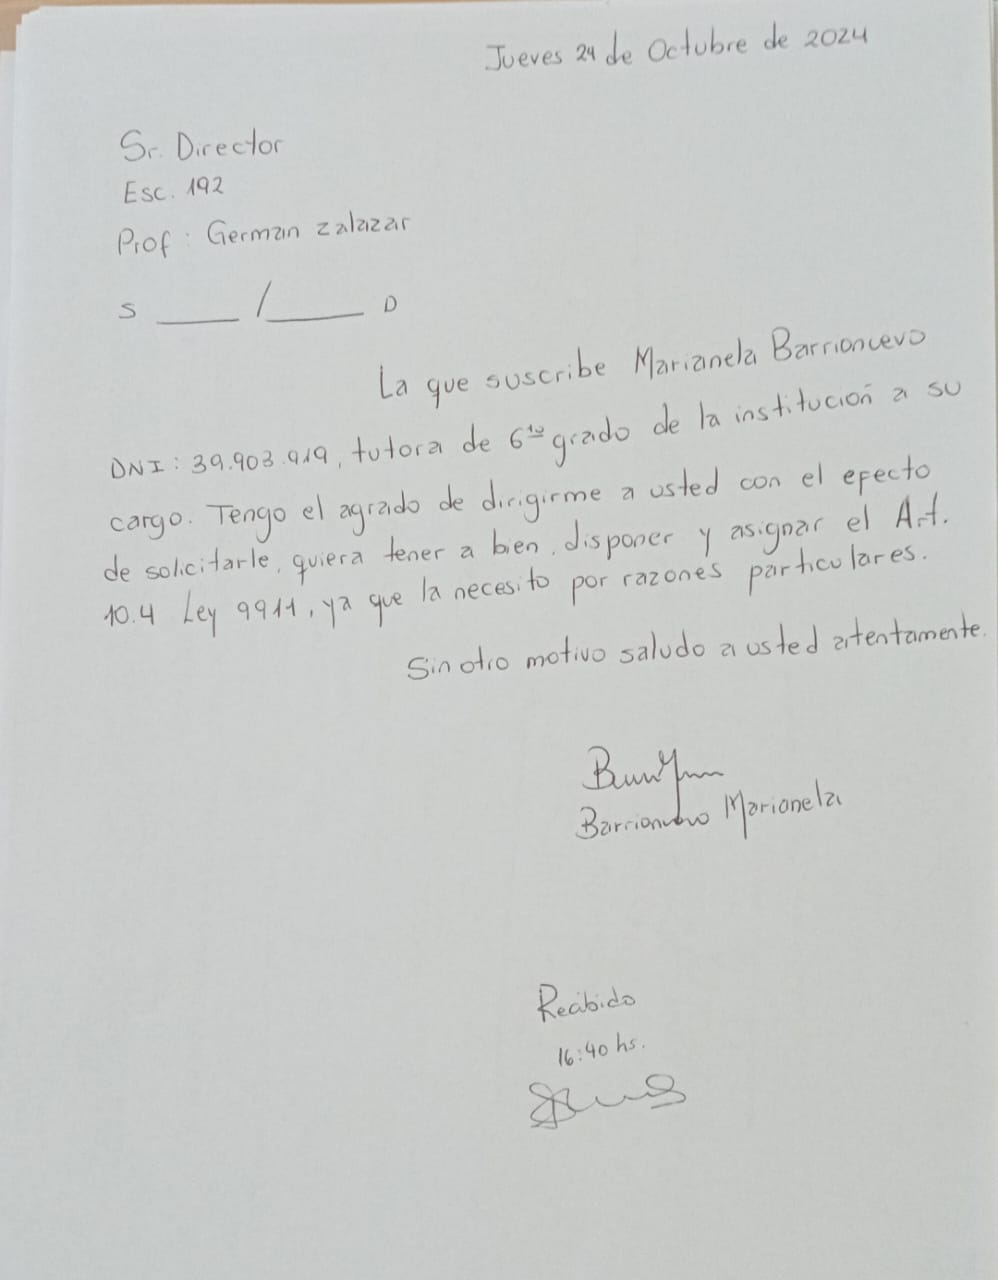 Jueves 24 de Octubre de 2024
Sr. Director
Esc. 192
Prof: German zalazar
S ____ /____ D
La que suscribe Marianela Barrionuevo
DNI: 39.903.919, tutora de 6to grado de la institución a su
cargo. Tengo el agrado de dirigirme a usted con el efecto
de solicitarle, quiera tener a bien, disponer y asignar el Art.
10.4 Ley 9911, ya que la necesito por razones particulares.
Sin otro motivo saludo a usted atentamente.
Barrionuevo Marianela
Recibido
16:40 hs.